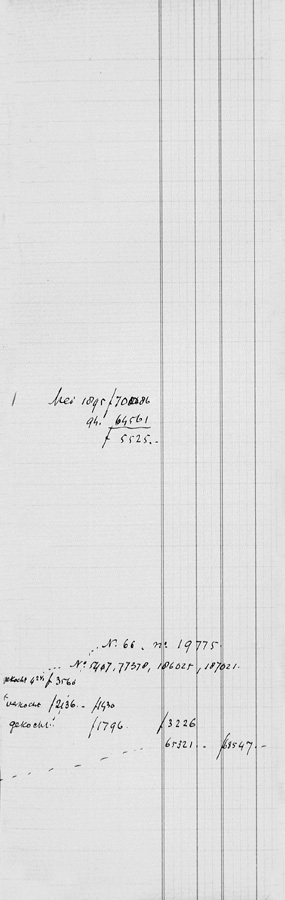 1 Mei 1895 f 70086
94. 64561
f 5525.-
N. 66. no 19775.
No 5407, 77378, 186025, 187021.
gekocht 4 f 3560
verkocht f 2136.- f 1430
gekocht f 1796. f 3226
65321.- f 68547.-